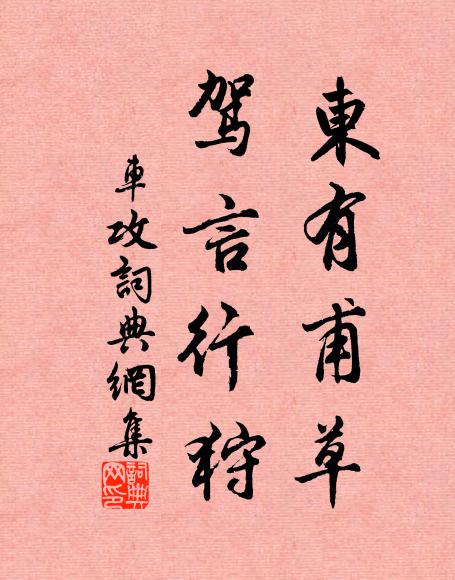 東有甫草
駕言行狩
車攻詞典網集
詞典
网印